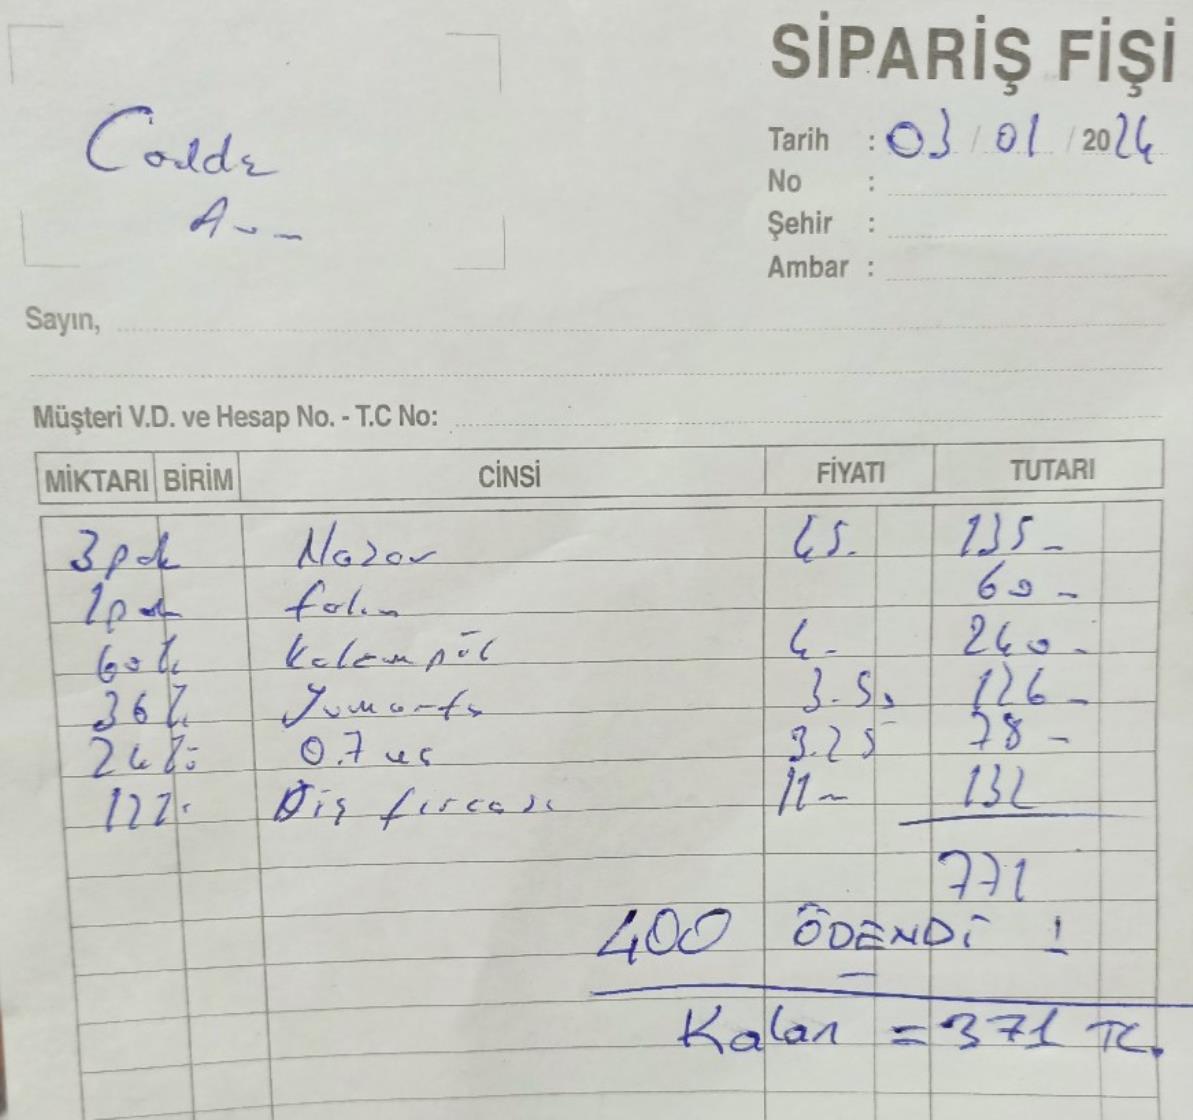 SİPARİŞ FİŞİ
Cadde
Tarih : 03 / 01 / 2024
No :
Şehir :
Ambar :
Sayın,
Müşteri V.D. ve Hesap No. - T.C No:
MİKTARI BİRİM CİNSİ FİYATI TUTARI
3 pak Nazar 45.- 135-
1 pak 60-
60 Kalem pil 4.- 240-
36 Yumurta 3.5 126-
24 0.7 uç 3.25 78-
12 Diş fırçası 11- 132
771
400 ÖDENDİ !
Kalan = 371 TL.